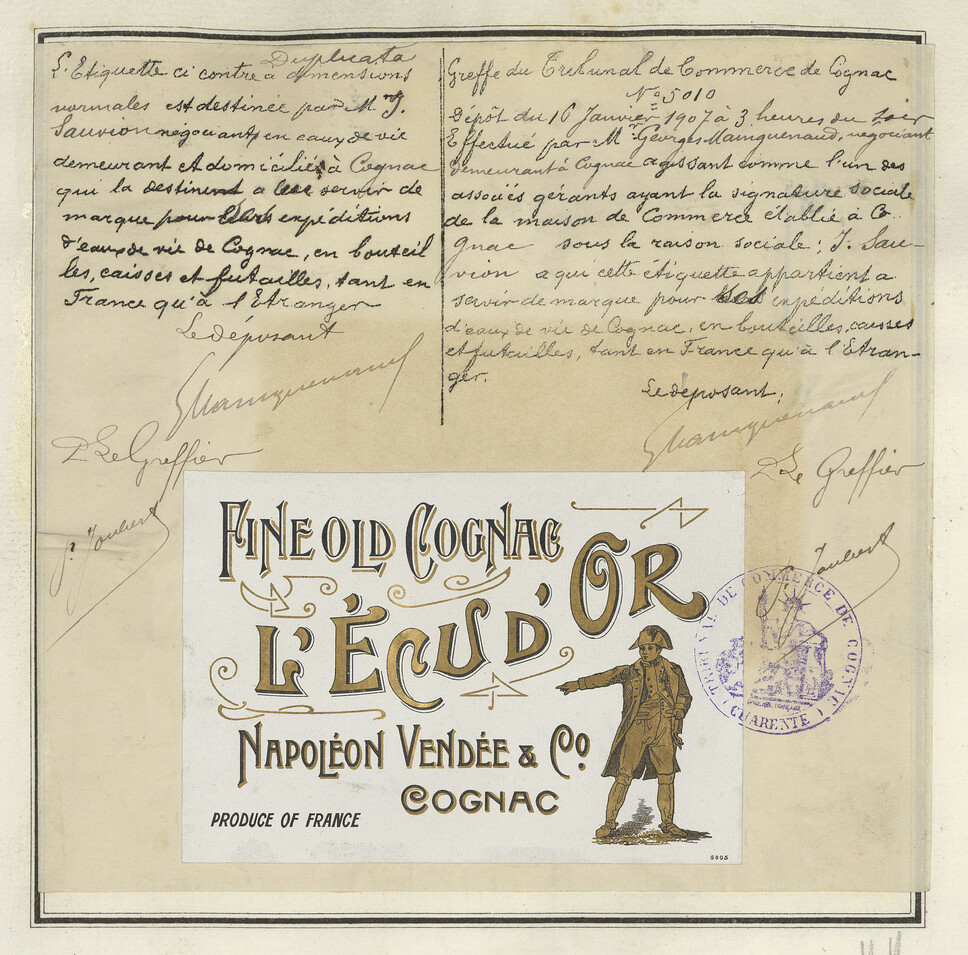 Duplicata
L'Etiquette ci contre à dimensions
normales est destinée par M. J.
Sauvion négociants en eaux de vie
demeurant et domiciliés à Cognac
qui la destinent a servir de
marque pour leurs expéditions
d'eaux de vie de Cognac, en bouteil
les, caisses et futailles, tant en
France qu'à l'Etranger
Le déposant
GMainguenaud
P. Le Greffier
Joubert
Greffe du Tribunal de Commerce de Cognac
N° 5010
Dépôt du 16 Janvier 1907 à 3 heures du soir
Effectué par M. Georges Mainguenaud, négociant
demeurant à Cognac agissant comme l'un des
associés gérants ayant la signature sociale
de la maison de Commerce établie à Co
gnac sous la raison sociale: J. Sau-
vion a qui cette étiquette appartient a
servir de marque pour ses expéditions
d'eaux de vie de Cognac, en bouteilles, caisses
et futailles, tant en France qu'à l'Etran-
ger.
Le déposant:
GMainguenaud
P. Le Greffier
Joubert
TRIBUNAL DE COMMERCE DE COGNAC
(CHARENTE)
FINE OLD COGNAC
L'ÉCU D'OR
NAPOLÉON VENDÉE & Co
COGNAC
PRODUCE OF FRANCE